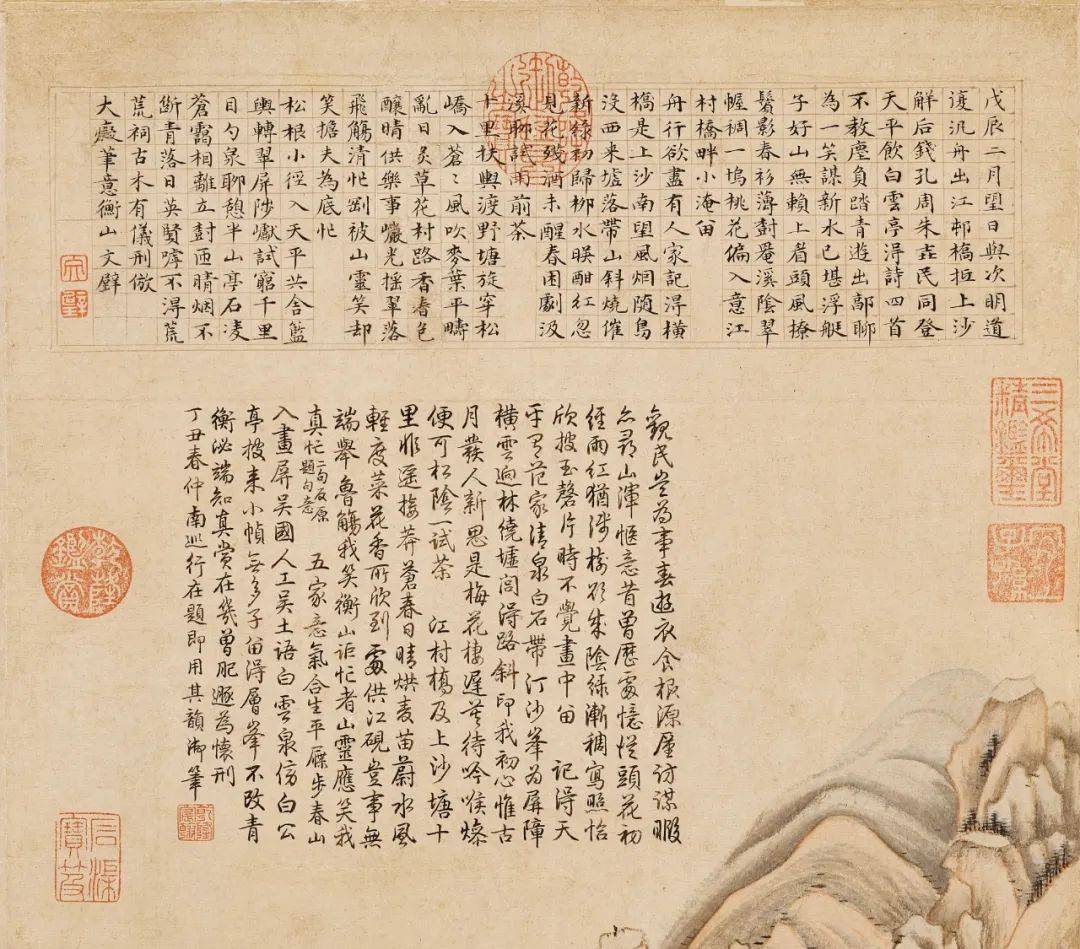 戊辰二月望日與次明道
復汎舟出江邨橋抵上沙
解后錢孔周朱垚民同登
天平飲白雲亭淂詩四首
不教塵負踏青遊出郭聊
為一笑謀新水已堪浮艇
子好山無賴上眉頭風撩
鬢影春衫薄對罨溪陰翠
幄稠一塢桃花偏入意江
村橋畔小淹畱
舟行欲盡有人家記淂橫
橋是上沙南望風烟隨鳥
沒西来墟落帶山斜燒催
新綠初歸柳水暎酣紅忽
見花殘酒未醒春困劇汲
溪聊試雨前茶
十里扶輿渡野塘旋穿松
嶠入蒼〻風吹麥葉平疇
亂日炙草花村路香春色
釀晴供樂事巖光搖翠落
飛觴清忙剛被山靈笑却
笑擔夫為底忙
松根小徑入天平共合籃
輿轉翠屏陟巘試窮千里
目勺泉聊憩半山亭石凌
蒼靄相離立對匝晴烟不
斷青落日英賢嘑不淂荒
荒祠古木有儀刑倣
大癡筆意衡山文璧
觀民豈為事春遊衣食根源屢訪謀暇
亦尋山渾愜意昔曾歷處憶從頭花初
經雨紅猶淺樹欲成陰綠漸稠寫照怡
欣披玉磬片時不覺畫中畱 記淂天
平有范家清泉白石帶汀沙峯為屏障
橫雲迥林繞墟閭淂路斜印我初心惟古
月發人新思是梅花棲遲莫待吟喉燥
便可松陰一試茶 江村橋及上沙塘十
里非遙接莽蒼春日晴烘麦苗蔚水風
輕度菜花香所欣到處供江硯豈事無
端舉魯觴我笑衡山詎忙者山靈應笑我
真忙二句反原題句意 五家意氣合生平屧步春山
入畫屏吳國人工吳土語白雲泉傍白公
亭披来小幀無多子畱淂層峯不改青
衡泌端知真賞在幾曾肥遯為懷刑
丁丑春仲南巡行在題即用其韻御筆
三希堂精鑑璽
宜子孫
乾隆鑑賞
石渠寶笈